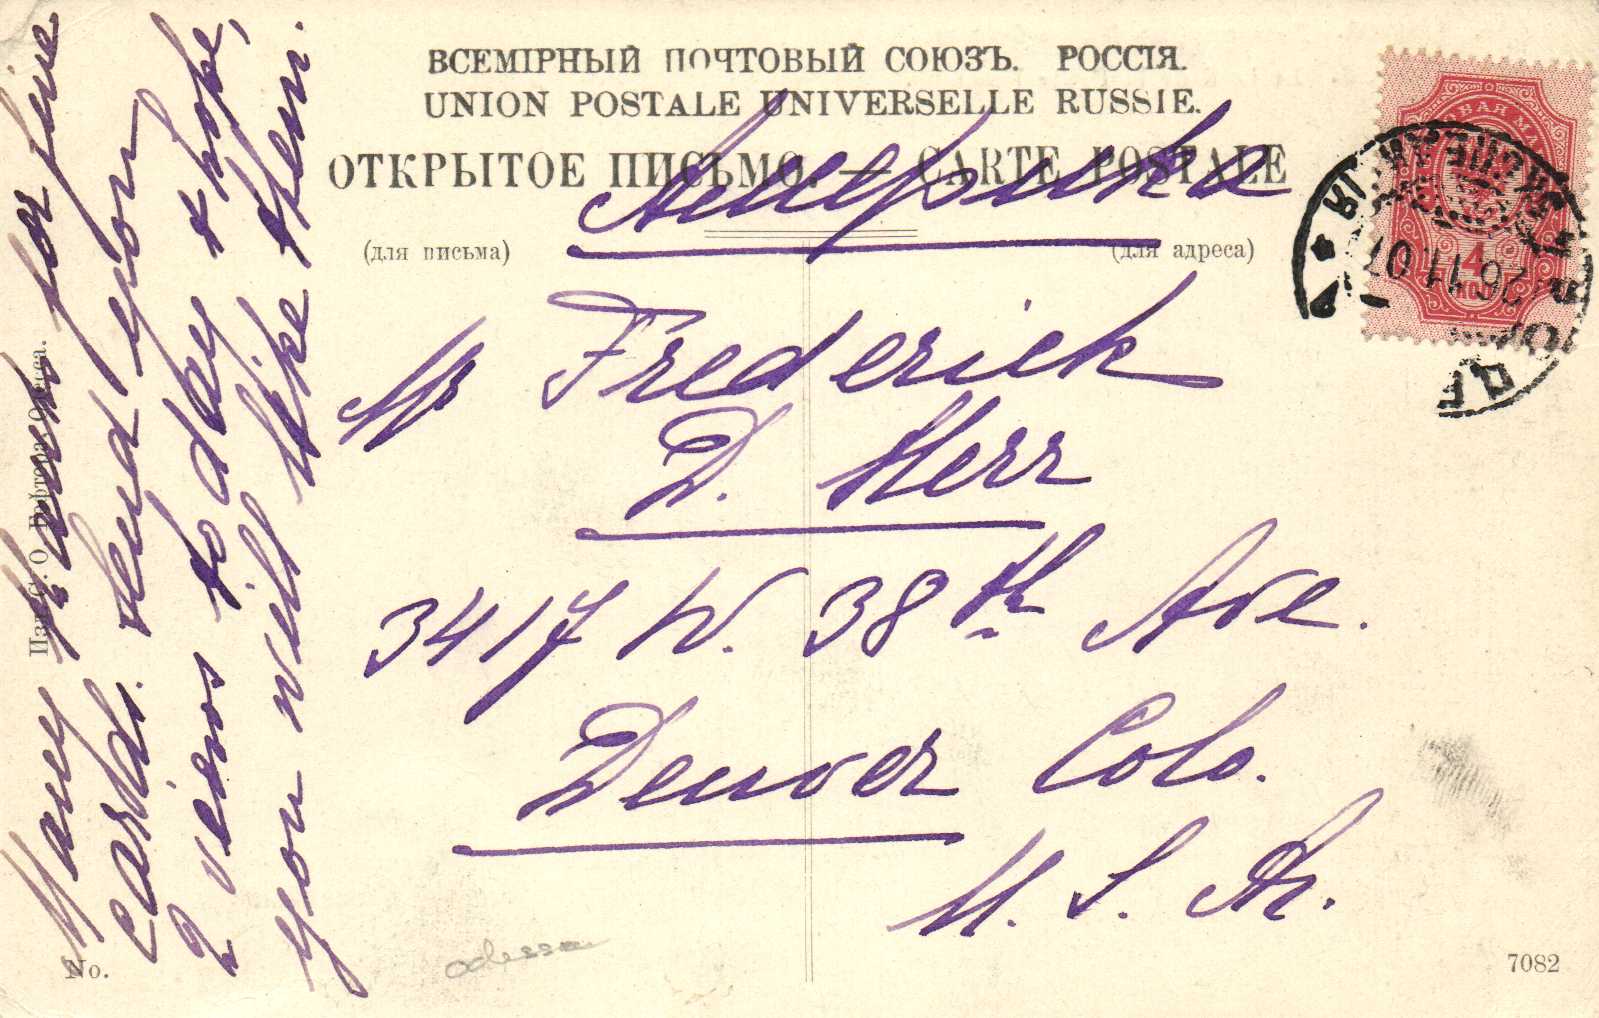 ВСЕМІРНЫЙ ПОЧТОВЫЙ СОЮЗЪ. РОССІЯ.
UNION POSTALE UNIVERSELLE RUSSIE.
ОТКРЫТОЕ ПИСЬМО. — CARTE POSTALE
Америка
(для письма)
(для адреса)
Mr Frederick
D. Herr
3417 W. 38th Ave.
Denver Colo.
U. S. A.
Many thanks for fine
cards. Send you
2 views to day & hope,
you will like them.
26 11 07
4
No.
odessa
7082